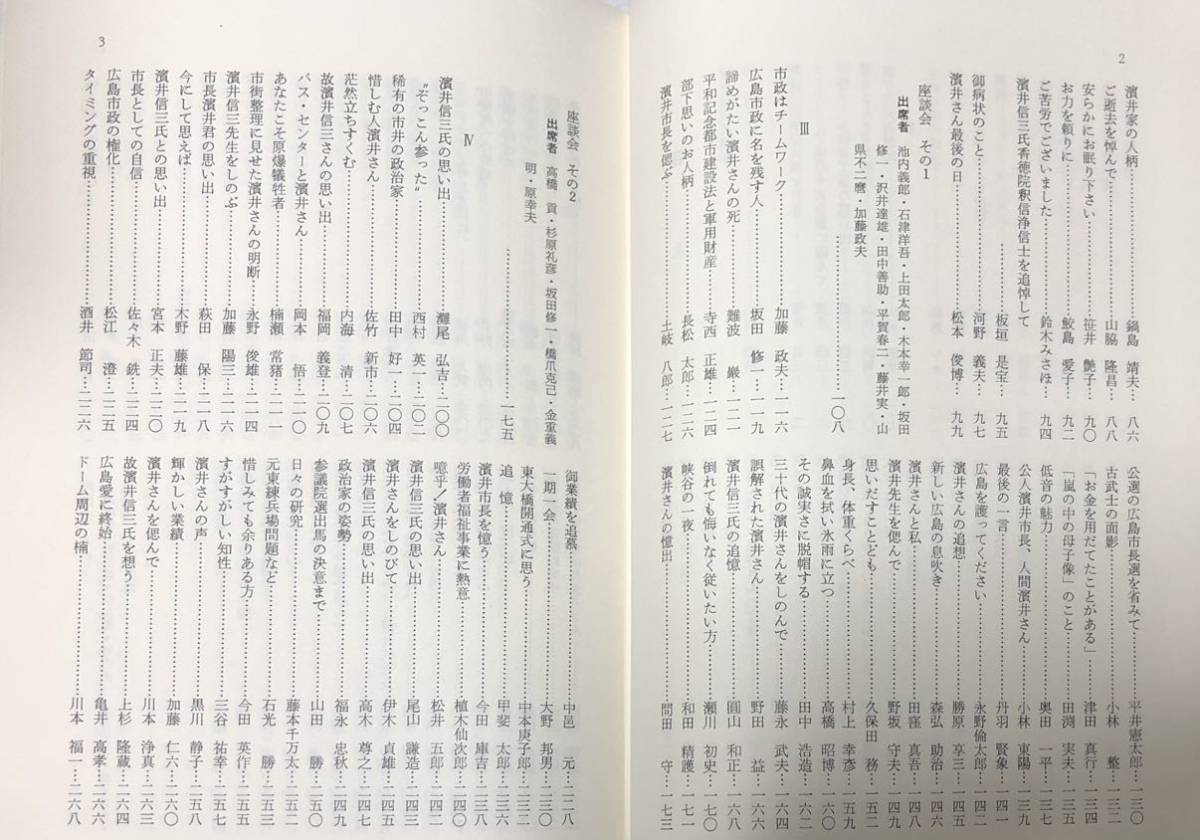 2
濱井家の人柄……鍋島 靖夫…八六
ご逝去を悼んで……山脇 隆昌…八八
安らかにお眠り下さい……笹井 艶子…九〇
お力を頼りに……鮫島 愛子…九二
ご苦労でございました……鈴木みさほ…九四
濱井信三氏香徳院釈信浄信士を追悼して
……板垣 是宝…九五
御病状のこと……河野 義夫…九七
濱井さん最後の日……松本 俊博…九九
座談会 その1
出席者 池内義郎・石津洋吾・上田太郎・木本幸一郎・坂田
修一・沢井達雄・田中善助・平賀春二・藤井実・山
県不二麿・加藤政夫
……一〇八
Ⅲ
市政はチームワーク……加藤 政夫…一一六
広島市政に名を残す人……坂田 修一…一一九
諦めがたい濱井さんの死……難波 巌…一二一
平和記念都市建設法と軍用財産……寺西 正雄…一二四
部下思いのお人柄……長松 太郎…一二六
濱井市長を偲ぶ……土岐 八郎…一二七
公選の広島市長選を省みて……平井憲太郎…一三〇
古武士の面影……小林 整…一三二
「お金を用だてたことがある」……津田 真行…一三三
「嵐の中の母子像」のこと……田渕 実夫…一三五
低音の魅力……奥田 一平…一三七
公人濱井市長、人間濱井さん……小林 東陽…一三九
最後の一言……丹羽 賢象…一四一
広島を護ってください……永野倫太郎…一四四
濱井さんの追想……勝原 享三…一四五
新しい広島の息吹き……森弘 助治…一四六
濱井さんと私……田窪 真吾…一四八
濱井先生を偲んで……野坂 守夫…一四九
思いだすことども……久保田 務…一五二
身長、体重くらべ……村上 幸彦…一五九
鼻血を拭い氷雨に立つ……高橋 昭博…一六〇
その誠実さに脱帽する……田中 浩造…一六二
三十代の濱井さんをしのんで……藤永 武夫…一六四
誤解された濱井さん……野田 益…一六六
濱井信三氏の追憶……圓山 和正…一六八
倒れても悔いなく従いたい方……瀬川 初史…一七〇
峡谷の一夜……和田 精護…一七一
濱井さんの憶出……問田 守…一七三
3
座談会 その2
出席者 高橋 貢・杉原礼彦・坂田修一・橋爪克己・金重義
明・原幸夫
……一七五
Ⅳ
濱井信三氏の思い出……灘尾 弘吉…二〇〇
“ぞっこん参った”……西村 英一…二〇二
稀有の市井の政治家……田中 好一…二〇四
惜しむ人濱井さん……佐竹 新市…二〇六
茫然立ちすくむ……内海 清…二〇七
故濱井信三さんの思い出……福岡 義登…二〇九
バス・センターと濱井さん……岡本 悟…二一〇
あなたこそ原爆犠牲者……楠瀬 常猪…二一一
市街整理に見せた濱井さんの明断……永野 俊雄…二一四
濱井信三先生をしのぶ……加藤 陽三…二一六
市長濱井君の思い出……萩田 保…二一八
今にして思えば……木野 藤雄…二一九
濱井信三氏との思い出……宮本 正夫…二二〇
市長としての自信……佐々木 銑…二二四
広島市政の権化……松江 澄…二二五
タイミングの重視……酒井 節司…二二六
御業績を追慕……中邑 元…二二八
一期一会……大野 邦男…二三〇
東大橋開通式に思う……中本庚子郎…二三二
追 憶……甲斐 太郎…二三五
濱井市長を憶う……今田 庫吉…二三八
労働者福祉事業に熱意……植木仙次郎…二四〇
噫乎/濱井さん……松井 五郎…二四〇
濱井信三氏の思い出……尾山 謙造…二四三
濱井さんをしのびて……伊木 貞雄…二四五
濱井信三氏の思い出……高木 尊之…二四八
政治家の姿勢……福永 忠秋…二四九
参議院選出馬の決意まで……山田 勝…二四九
日々の研究……藤本千万太…二五〇
元東練兵場問題など……石光 勝…二五三
惜しみても余りある方……今田 英作…二五五
すがすがしい知性……三谷 祐幸…二五七
濱井さんの声……黒川 静子…二五八
輝かしい業績……加藤 仁六…二六〇
濱井さんを偲んで……川本 浄真…二六三
故濱井信三氏を想う……上杉 隆蔵…二六四
広島愛に終始……亀井 高孝…二六六
ドーム周辺の楠……川本 福一…二六八